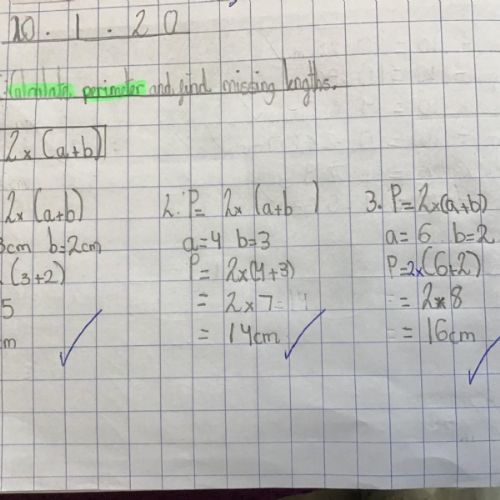 10.1.20
Calculate perimeter and find missing lengths.
2x(a+b)
2x(a+b)
3cm b=2cm
(3+2)
5
m
2. P= 2x(a+b)
a=4 b=3
P= 2x(4+3)
= 2x7=
= 14cm
3. P=2x(a+b)
a=6 b=2
P=2x(6+2)
= 2x8
= 16cm